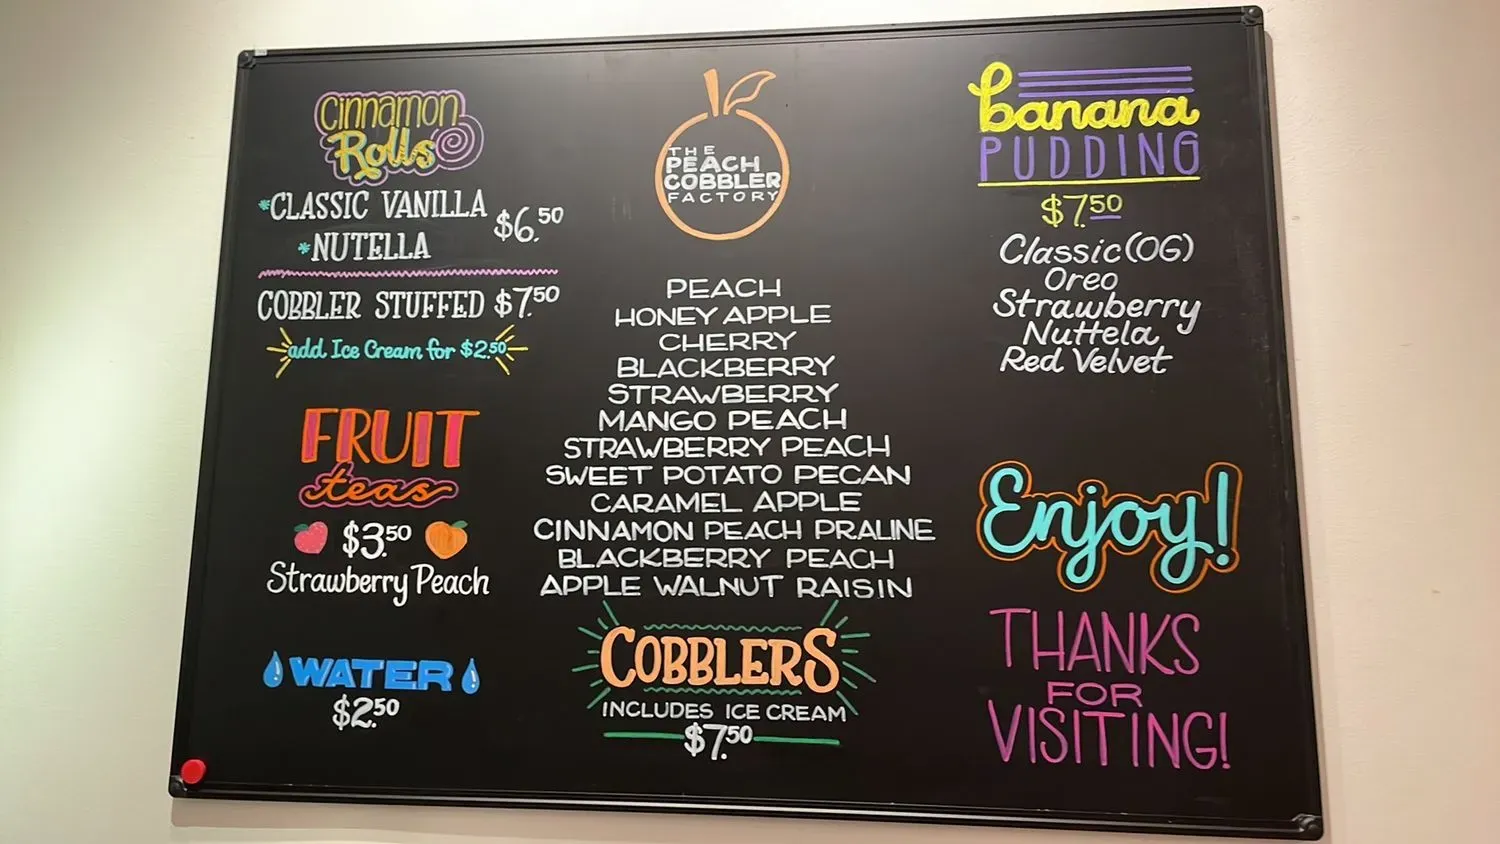 Cinnamon
Rolls
*CLASSIC VANILLA
*NUTELLA
$6.50
COBBLER STUFFED $7.50
add Ice Cream for $2.50
FRUIT
teas
$3.50
Strawberry Peach
WATER
$2.50
THE
PEACH
COBBLER
FACTORY
PEACH
HONEY APPLE
CHERRY
BLACKBERRY
STRAWBERRY
MANGO PEACH
STRAWBERRY PEACH
SWEET POTATO PECAN
CARAMEL APPLE
CINNAMON PEACH PRALINE
BLACKBERRY PEACH
APPLE WALNUT RAISIN
COBBLERS
INCLUDES ICE CREAM
$7.50
banana
PUDDING
$7.50
Classic (OG)
Oreo
Strawberry
Nuttela
Red Velvet
Enjoy!
THANKS
FOR
VISITING!